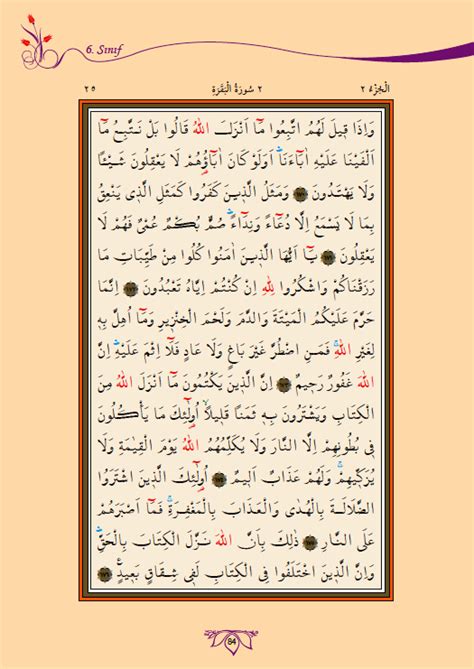 6. Sınıf
اَلْجُزْءُ ٢
٢ سُورَةُ الْبَقَرَةِ
٢٥
وَاِذَا قِيلَ لَهُمُ اتَّبِعُوا مَٓا اَنْزَلَ اللّٰهُ قَالُوا بَلْ نَتَّبِعُ مَٓا
اَلْفَيْنَا عَلَيْهِ اٰبَٓاءَنَاۜ اَوَلَوْ كَانَ اٰبَٓاؤُ۬هُمْ لَا يَعْقِلُونَ شَيْـًٔا
وَلَا يَهْتَدُونَ ﴿١٧٠﴾ وَمَثَلُ الَّذ۪ينَ كَفَرُوا كَمَثَلِ الَّذ۪ي يَنْعِقُ
بِمَا لَا يَسْمَعُ اِلَّا دُعَٓاءً وَنِدَٓاءًۜ صُمٌّ بُكْمٌ عُمْيٌ فَهُمْ لَا
يَعْقِلُونَ ﴿١٧١﴾ يَٓا اَيُّهَا الَّذ۪ينَ اٰمَنُوا كُلُوا مِنْ طَيِّبَاتِ مَا
رَزَقْنَاكُمْ وَاشْكُرُوا لِلّٰهِ اِنْ كُنْتُمْ اِيَّاهُ تَعْبُدُونَ ﴿١٧٢﴾ اِنَّمَا
حَرَّمَ عَلَيْكُمُ الْمَيْتَةَ وَالدَّمَ وَلَحْمَ الْخِنْز۪يرِ وَمَٓا اُهِلَّ بِه۪
لِغَيْرِ اللّٰهِۚ فَمَنِ اضْطُرَّ غَيْرَ بَاغٍ وَلَا عَادٍ فَلَٓا اِثْمَ عَلَيْهِۜ اِنَّ
اللّٰهَ غَفُورٌ رَح۪يمٌ ﴿١٧٣﴾ اِنَّ الَّذ۪ينَ يَكْتُمُونَ مَٓا اَنْزَلَ اللّٰهُ مِنَ
الْكِتَابِ وَيَشْتَرُونَ بِه۪ ثَمَنًا قَل۪يلًاۙ اُو۬لٰٓئِكَ مَا يَأْكُلُونَ
ف۪ي بُطُونِهِمْ اِلَّا النَّارَ وَلَا يُكَلِّمُهُمُ اللّٰهُ يَوْمَ الْقِيٰمَةِ وَلَا
يُزَكّ۪يهِمْۚ وَلَهُمْ عَذَابٌ اَل۪يمٌ ﴿١٧٤﴾ اُو۬لٰٓئِكَ الَّذ۪ينَ اشْتَرَوُا
الضَّلَالَةَ بِالْهُدٰى وَالْعَذَابَ بِالْمَغْفِرَةِۚ فَمَٓا اَصْبَرَهُمْ
عَلَى النَّارِ ﴿١٧٥﴾ ذٰلِكَ بِاَنَّ اللّٰهَ نَزَّلَ الْكِتَابَ بِالْحَقِّۜ
وَاِنَّ الَّذ۪ينَ اخْتَلَفُوا فِي الْكِتَابِ لَف۪ي شِقَاقٍ بَع۪يدٍ۟ ﴿١٧٦﴾
84